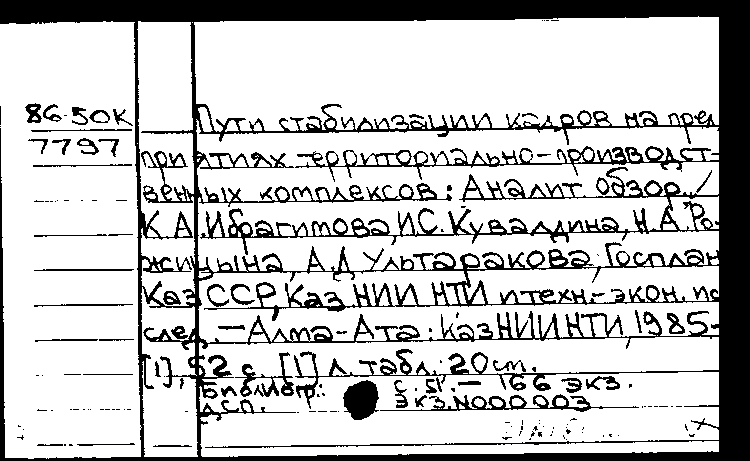 86-50К
7797
Пути стабилизации кадров на пред
приятиях территориально-производст-
венных комплексов: Аналит. обзор /
К.А. Ибрагимова, И.С. Кувалдина, Н.А. Ро-
жицына, А.Д Ультаракова; Госплан
КазССР, Каз НИИ НТИ и техн.-экон. ис
след. - Алма-Ата: КазНИИНТИ, 1985-
[1], 52 с. [1] л. табл.; 20 см.
Библиогр.: с. 51. - 166 экз.
ДСП. экз. N000003.